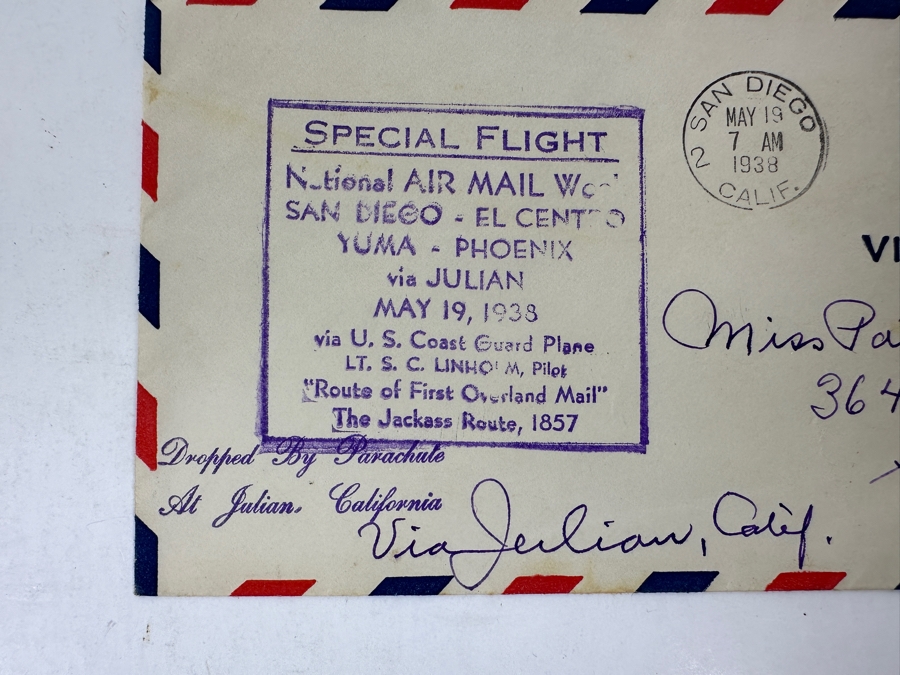 SPECIAL FLIGHT
National AIR MAIL
SAN DIEGO - EL CENTRO
YUMA - PHOENIX
via JULIAN
MAY 19, 1938
via U. S. Coast Guard Plane
LT. S. C. LINHOLM, Pilot
"Route of First Overland Mail"
The Jackass Route, 1857
Dropped By Parachute
At Julian, California
Via Julian, Calif.
SAN DIEGO
MAY 19
7 AM
1938
2 CALIF.
VI
Miss Pa
364